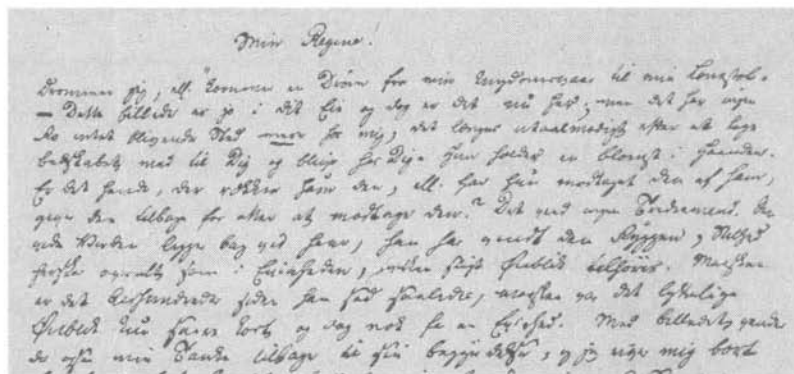 Min Regine!
Drømmer jeg, ell. kommer en Drøm fra min Ungdomsvaar til min Lænestol.
— Dette Billede er jo i Dit Eie og dog er det nu her; men det har ingen
Ro intet blivende Sted mere hos mig, det længes utaalmodigt efter at tage
Budskabet med til Dig og blive hos Dig. Hun holder en Blomst i Haanden.
Er det hende, der rækker ham den, ell. har hun modtaget den af ham,
giver den tilbage for atter at modtage den? Det veed ingen Trediemand. Den
vide Verden ligger bag ved ham, han har vendt den Ryggen, Stilhed
hersker overalt som i Evigheden, hvilken sligt Øieblik tilhører. Maaskee
er det Aarhundreder siden han sad saaledes, maaskee var det lykkelige
Øieblik kun saare kort og dog nok for en Evighed. Med Billedet vender
da ogsaa min Tanke tilbage til sin Begyndelse, og jeg river mig bort